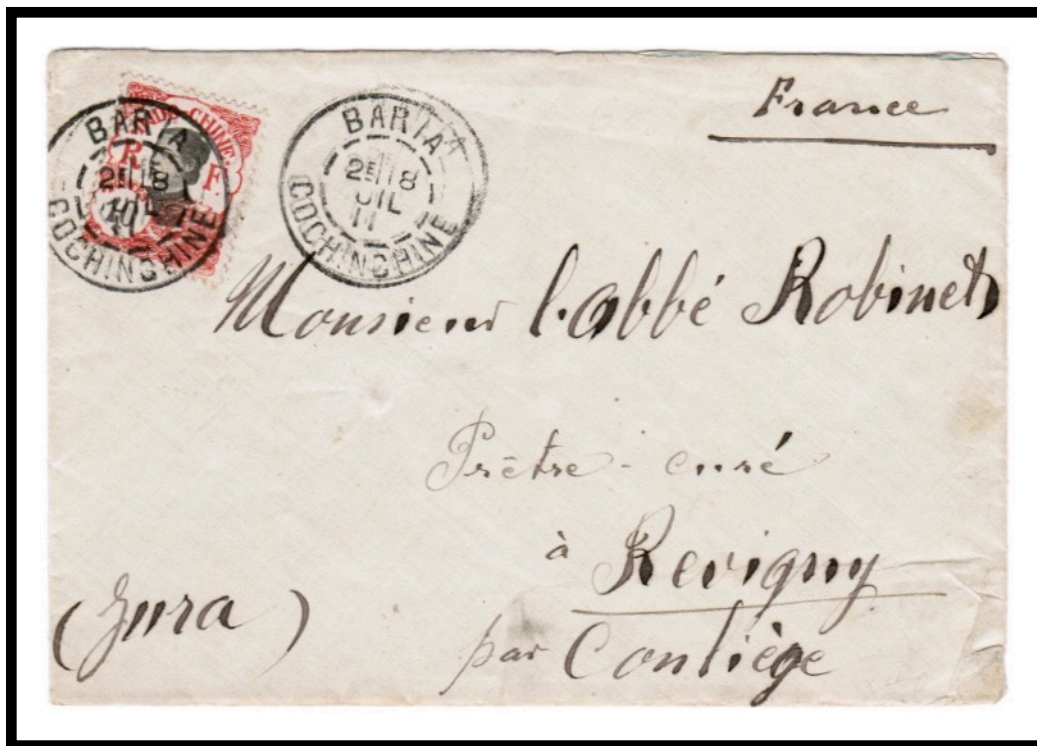 France
INDO-CHINE
R F.
BARIA
2E 18
JUIL
11
COCHINCHINE
BARIA
2E 18
JUIL
11
COCHINCHINE
Monsieur l'abbé Robinet
Prêtre-curé
à Revigny
(Jura)
par Conliège